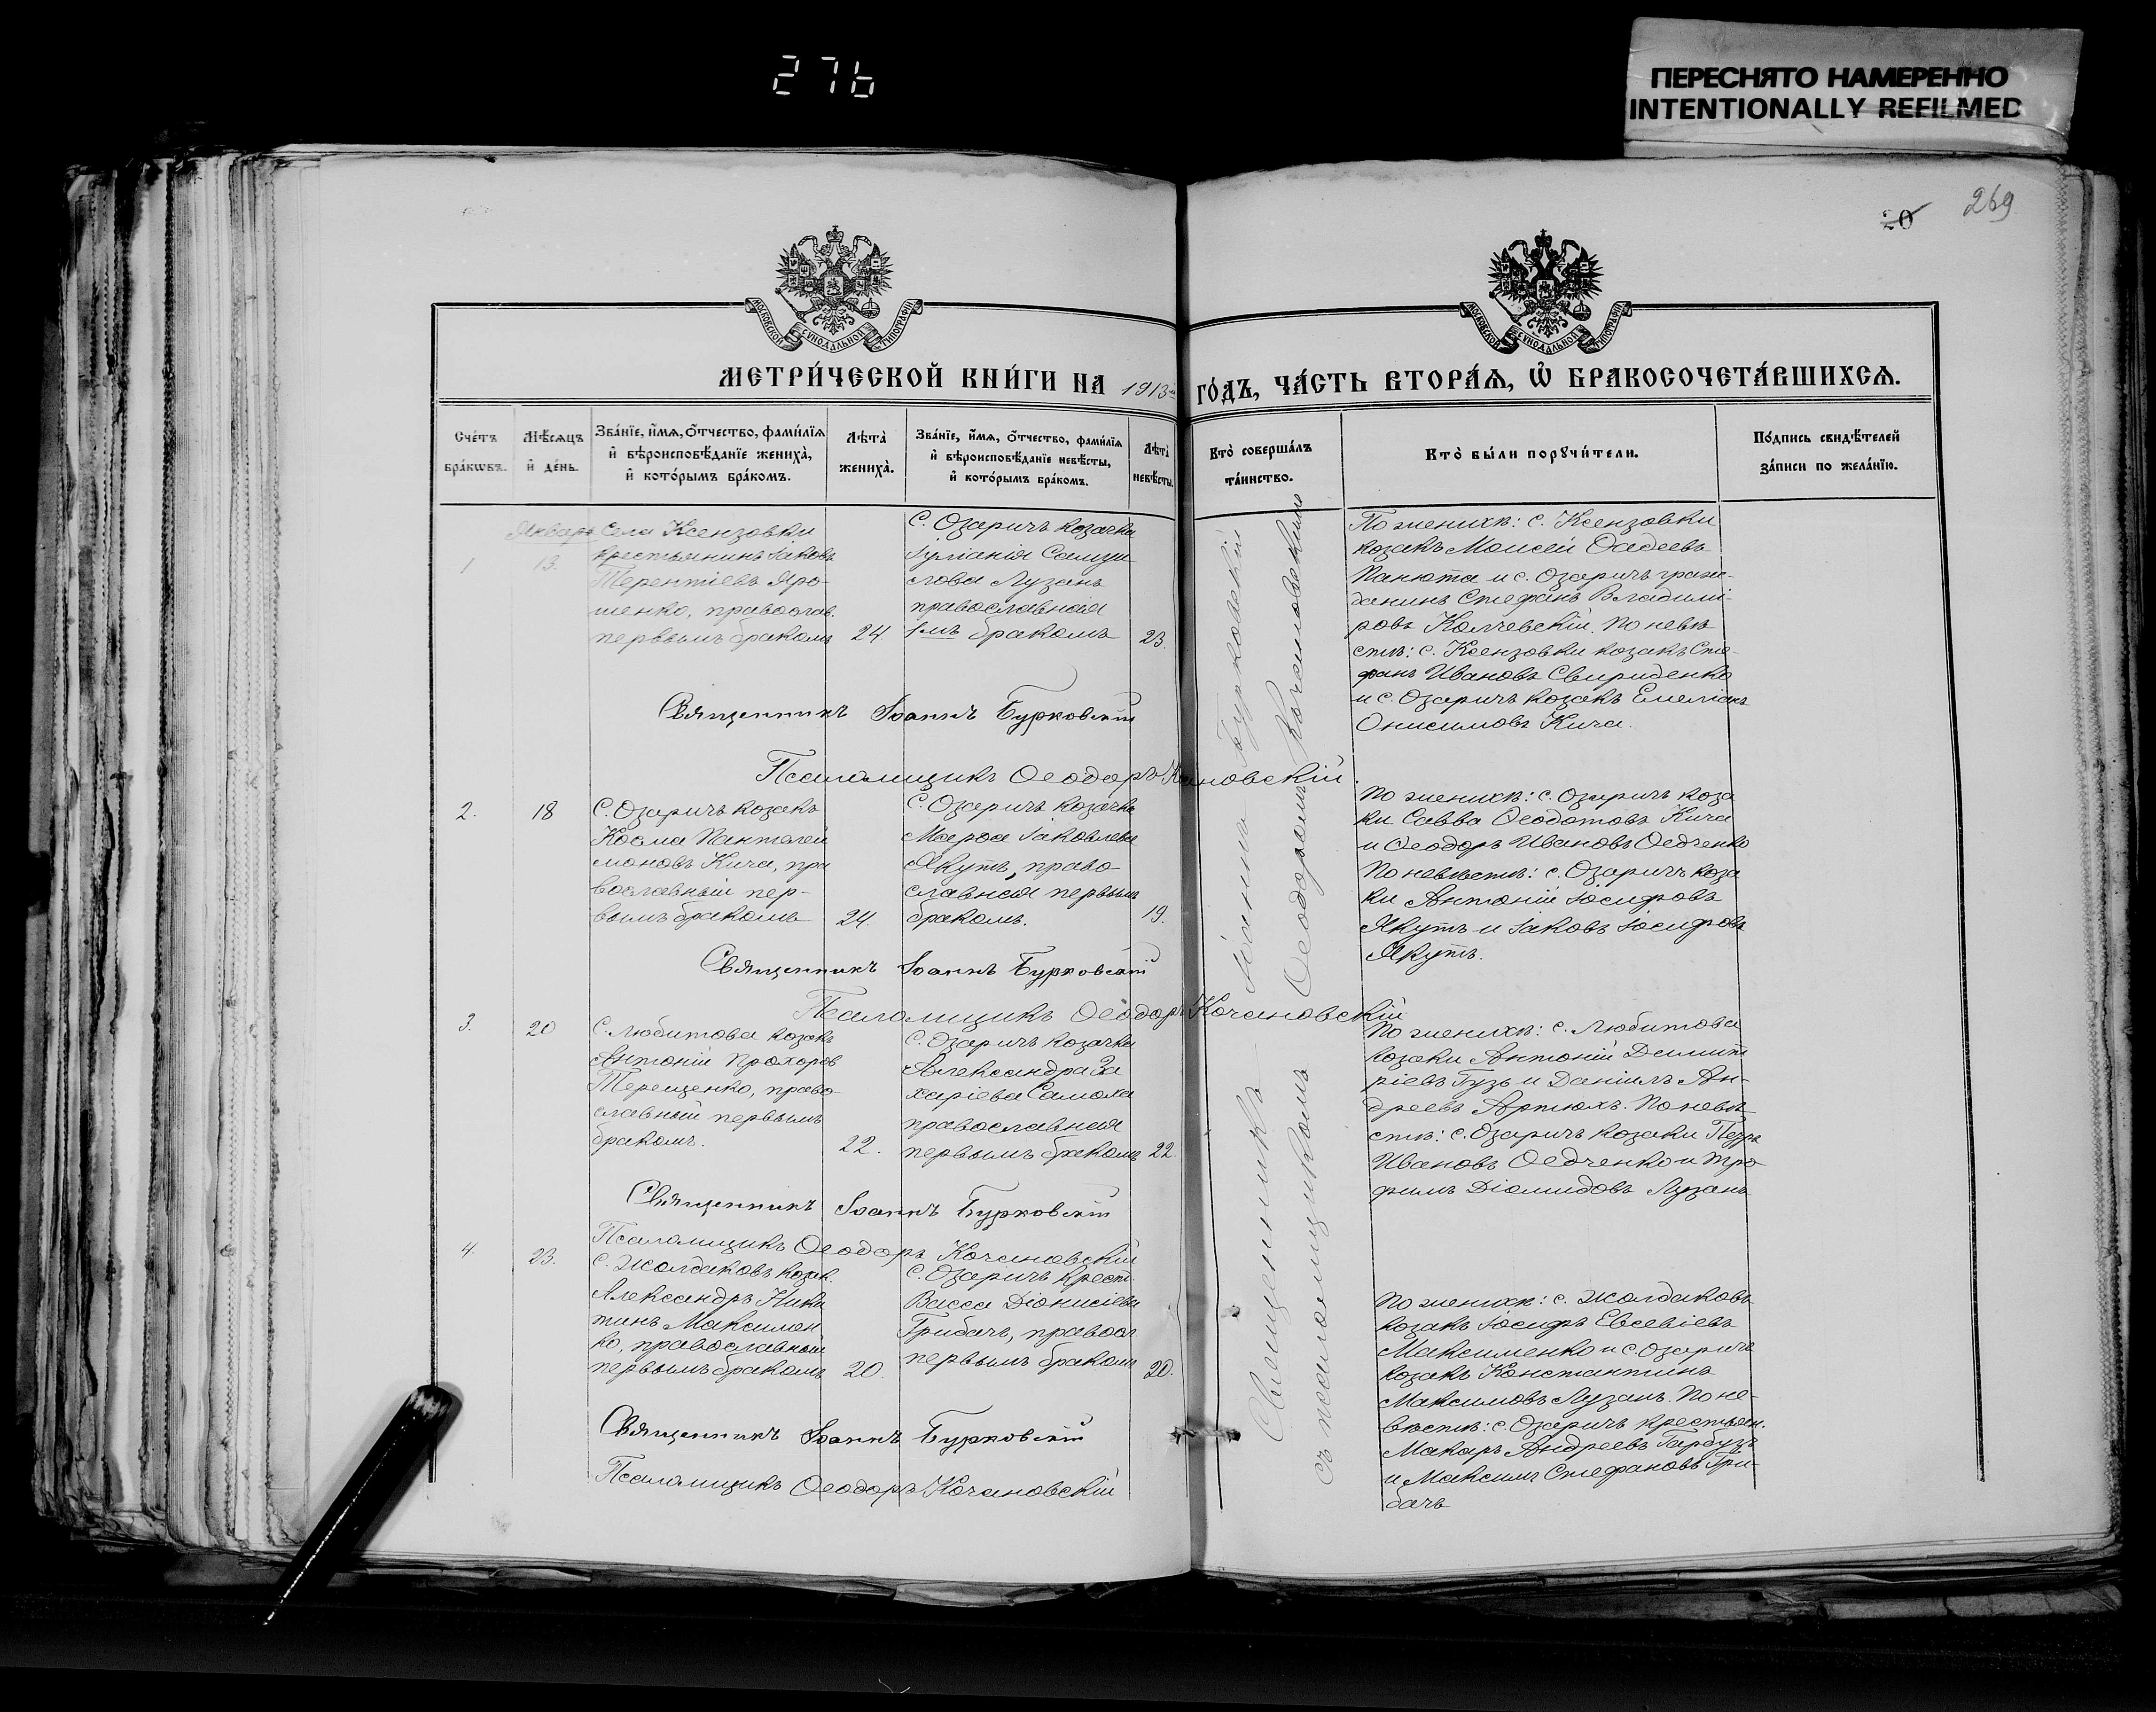 276
ПЕРЕСНЯТО НАМЕРЕННО
INTENTIONALLY REFILMED
20
269
МОСКОВСКОЙ СѴНОДАЛЬНОЙ ТИПОГРАФІИ
МОСКОВСКОЙ СѴНОДАЛЬНОЙ ТИПОГРАФІИ
МЕТРИ́ЧЕСКОЙ КНИ́ГИ НА 1913й ГО́ДЪ, ЧА́СТЬ ВТОРА́Ѧ, Ѽ БРАКОСОЧЕТА́ВШИХСѦ.
Сче́тъ
бра́кѡвъ.
Мѣ́сѧцъ
и҆ де́нь.
Зва́нїе, и҆́мѧ, ѻ҆́тчество, фамилїѧ
и҆ вѣроисповѣ́данїе жениха̀,
и҆ кото́рымъ бра́комъ.
Лѣта̀
жениха̀.
Зва́нїе, и҆́мѧ, ѻ҆́тчество, фамилїѧ
и҆ вѣроисповѣ́данїе невѣ́сты,
и҆ кото́рымъ бра́комъ.
Лѣта̀
невѣ́сты.
Кто̀ соверша́лъ
та́инство.
Кто̀ бы́ли порꙋчи́тели.
По́дпись свидѣ́телей
за́писи по жела́нїю.
1
Январь
13.
Села Ксензовки
крестьянинъ Іаковъ
Терентіевъ Яро-
шенко, православ.
первымъ бракомъ
24
С. Озаричъ козачка
Іуліанія Самуи
лова Лузанъ
православная
1мъ бракомъ
23.
По женихѣ: с. Ксензовки
козакъ Моисей Ѳадеевъ
Панюта и с. Озаричъ граж-
данинъ Стефанъ Владимі-
ровъ Колчевскій. По невѣ
стѣ: с. Ксензовки козакъ Сте-
фанъ Ивановъ Свириденко
и с. Озаричъ козакъ Емеліанъ
Онисимовъ Кича.
Священникъ Іоаннъ Бурковскій
Псаломщикъ Ѳеодоръ Качановскій.
2.
18
С. Озаричъ козакъ
Косма Пантелеи
моновъ Кича, пра
вославный пер-
вымъ бракомъ
24.
С. Озаричъ козачка
Марѳа Іаковлева
Якутъ, право-
славная первымъ
бракомъ.
19.
По женихѣ: с. Озаричъ коза
ки Савва Ѳеодотовъ Кича
и Ѳеодоръ Ивановъ Ѳедченко
По невѣстѣ: с. Озаричъ коза
ки Антоній Іосифовъ
Якутъ и Іаковъ Іосифовъ
Якутъ.
Священникъ Іоаннъ Бурковскій
Псаломщикъ Ѳеодоръ Качановскій
3.
20
С. Любитова козакъ
Антоній Прохоров
Терещенко, право
славный первымъ
бракомъ.
22.
С. Озаричъ козачка
Александра За
харіева Самоха
православная
первымъ бракомъ
22.
По женихѣ: с. Любитова
козаки Антоній Димит
ріевъ Гузь и Даніилъ Ан-
дреевъ Артюхъ. По невѣ-
стѣ: с. Озаричъ козаки Петръ
Ивановъ Ѳедченко и Тро-
фимъ Діомидовъ Лузанъ
Священникъ Іоаннъ Бурковскій
Псаломщикъ Ѳеодоръ Качановскій
4
23.
С. Жолдаковъ козак.
Александръ Ники
тинъ Максимен
ко, православный
первымъ бракомъ
20.
С. Озаричъ крест.
Васса Діонисіева
Грибачъ, правосл
первымъ бракомъ
20.
По женихѣ: с. Жолдаковъ
козакъ Іосифъ Евсевіевъ
Максименко и с. Озаричъ
козакъ Константинъ
Максимовъ Лузанъ. По не-
вѣстѣ: с. Озаричъ крестьян.
Макаръ Андреевъ Гарбузъ
и Максимъ Стефановъ Гри-
бачъ
Священникъ Іоаннъ Бурковскій
Псаломщикъ Ѳеодоръ Качановскій
Священникъ Іоаннъ Бурковскій
съ псаломщикомъ Ѳеодоромъ Качановскимъ